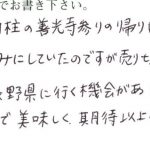 でお書き下さい。
柱の善光寺参りの帰り
みにしていたのですが売り
野県に行く機会があ
で美味しく期待以上